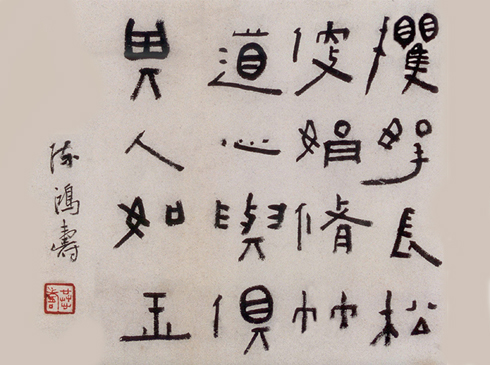 攫挐長松
便娟脩竹
道心與俱
異人如玉
陳鴻壽